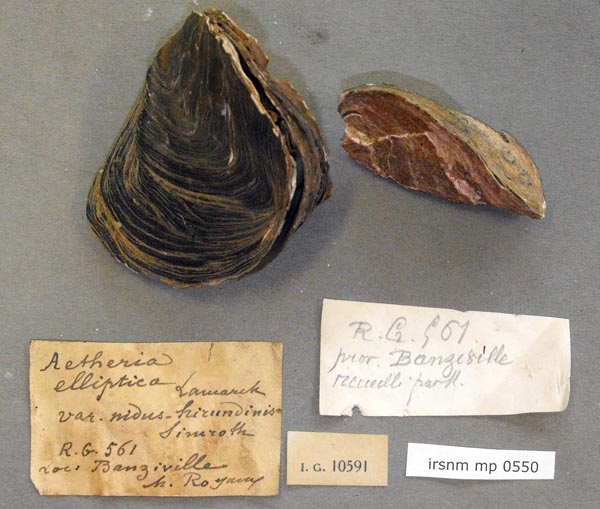 Aetheria
elliptica Lamarck
var. nidus-hirundinis
Simroth
R.G. 561
Loc: Banziville
M. Royaux
R.G. 561
prov. Banziville
recueilli par M.
I. G. 10591
irsnm mp 0550